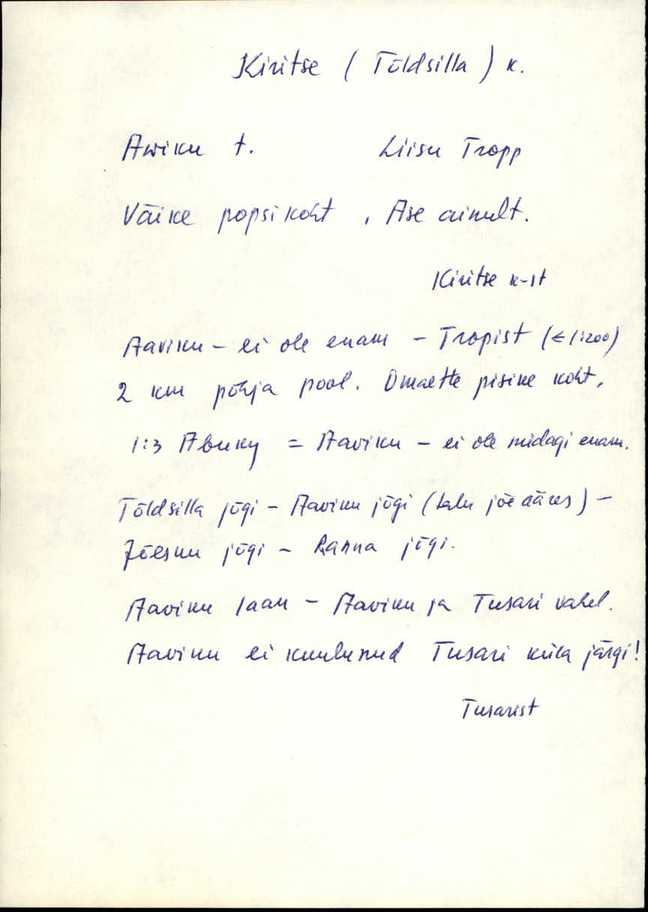 Kiritse (Tõldsilla) k.
Awiku t. Liisu Tropp
Väike popsikoht, Ase ainult.
Kiritse k-st
Aaviku – ei ole enam – Tropist (← 1:200)
2 km põhja pool. Omaette pisike koht,
1:3 Авику = Aaviku – ei ole midagi enam.
Tõldsilla jõgi – Aaviku jõgi (talu jõe ääres) –
Jõesuu jõgi – Ranna jõgi.
Aaviku laan – Aaviku ja Tusari vahel.
Aaviku ei kuulunud Tusari küla järgi!
Tusarist